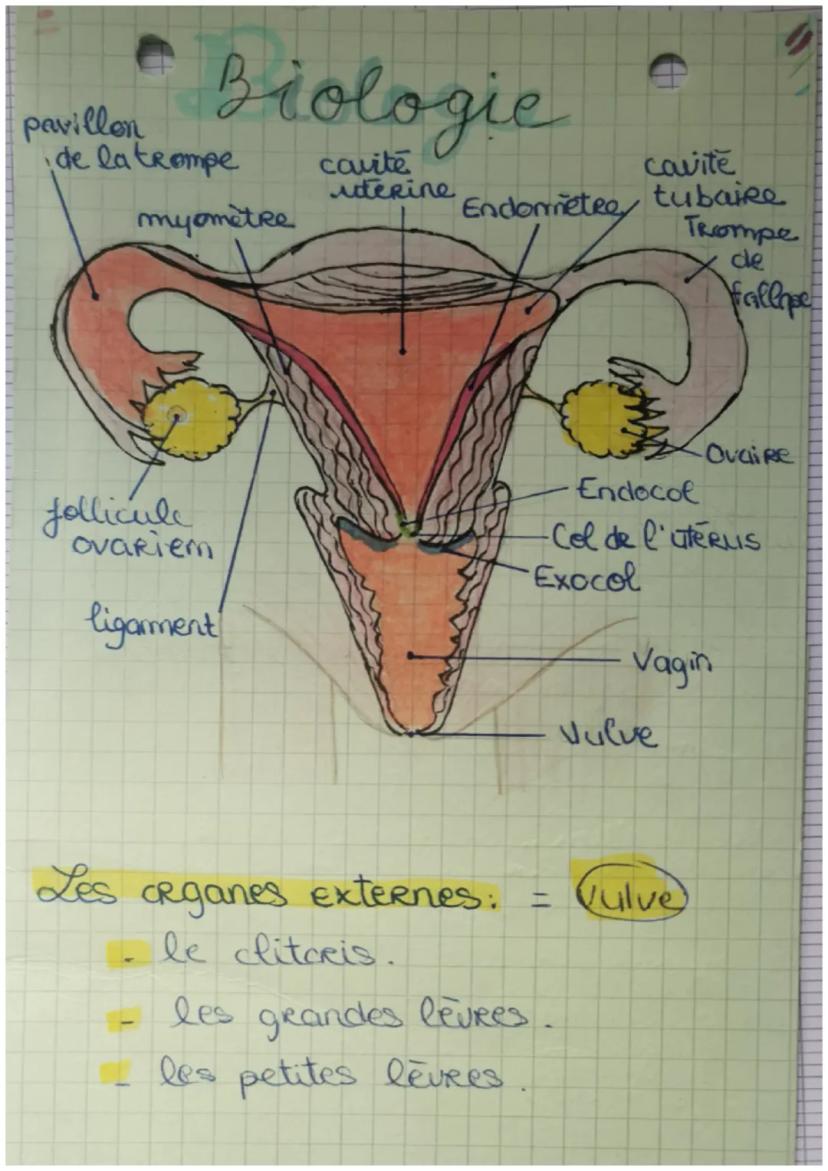 Biologie
pavillon
de la trompe
cavité
utérine
cavité
tubaire
myomètre
Endomètre
Trompe
de
fallope
Ovaire
follicule
ovarien
Endocol
Col de l'utérus
Exocol
ligament
Vagin
Vulve
Les organes externes: = Vulve
- le clitoris.
- les grandes lèvres.
- les petites lèvres.